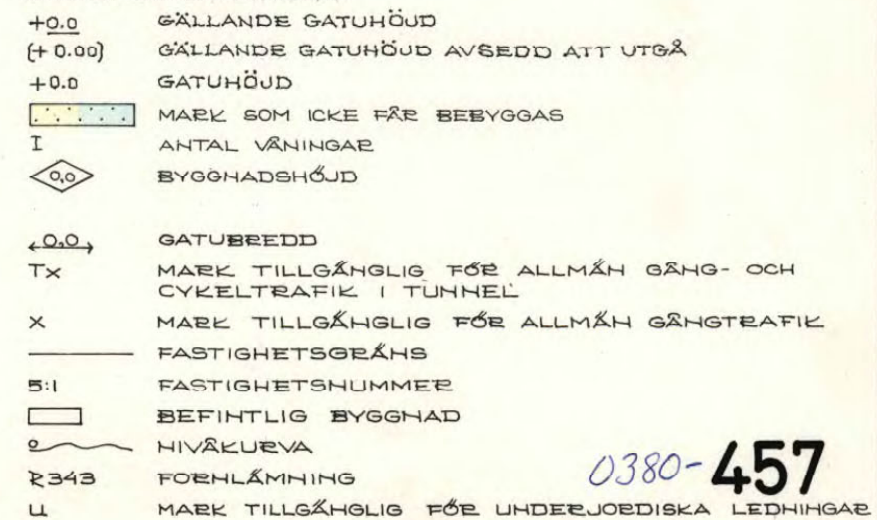 +0.0 GÄLLANDE GATUHÖJD
(+ 0.00) GÄLLANDE GATUHÖJD AVSEDD ATT UTGÅ
+0.0 GATUHÖJD
MARK SOM ICKE FÅR BEBYGGAS
I ANTAL VÅNINGAR
0,0 BYGGNADSHÖJD
0,0 GATUBREDD
Tx MARK TILLGÄNGLIG FÖR ALLMÄN GÅNG- OCH
CYKELTRAFIK I TUNNEL
x MARK TILLGÄNGLIG FÖR ALLMÄN GÅNGTRAFIK
FASTIGHETSGRÄNS
5:1 FASTIGHETSNUMMER
BEFINTLIG BYGGNAD
NIVÅKURVA
R343 FORNLÄMNING
0380-457
u MARK TILLGÄNGLIG FÖR UNDERJORDISKA LEDNINGAR